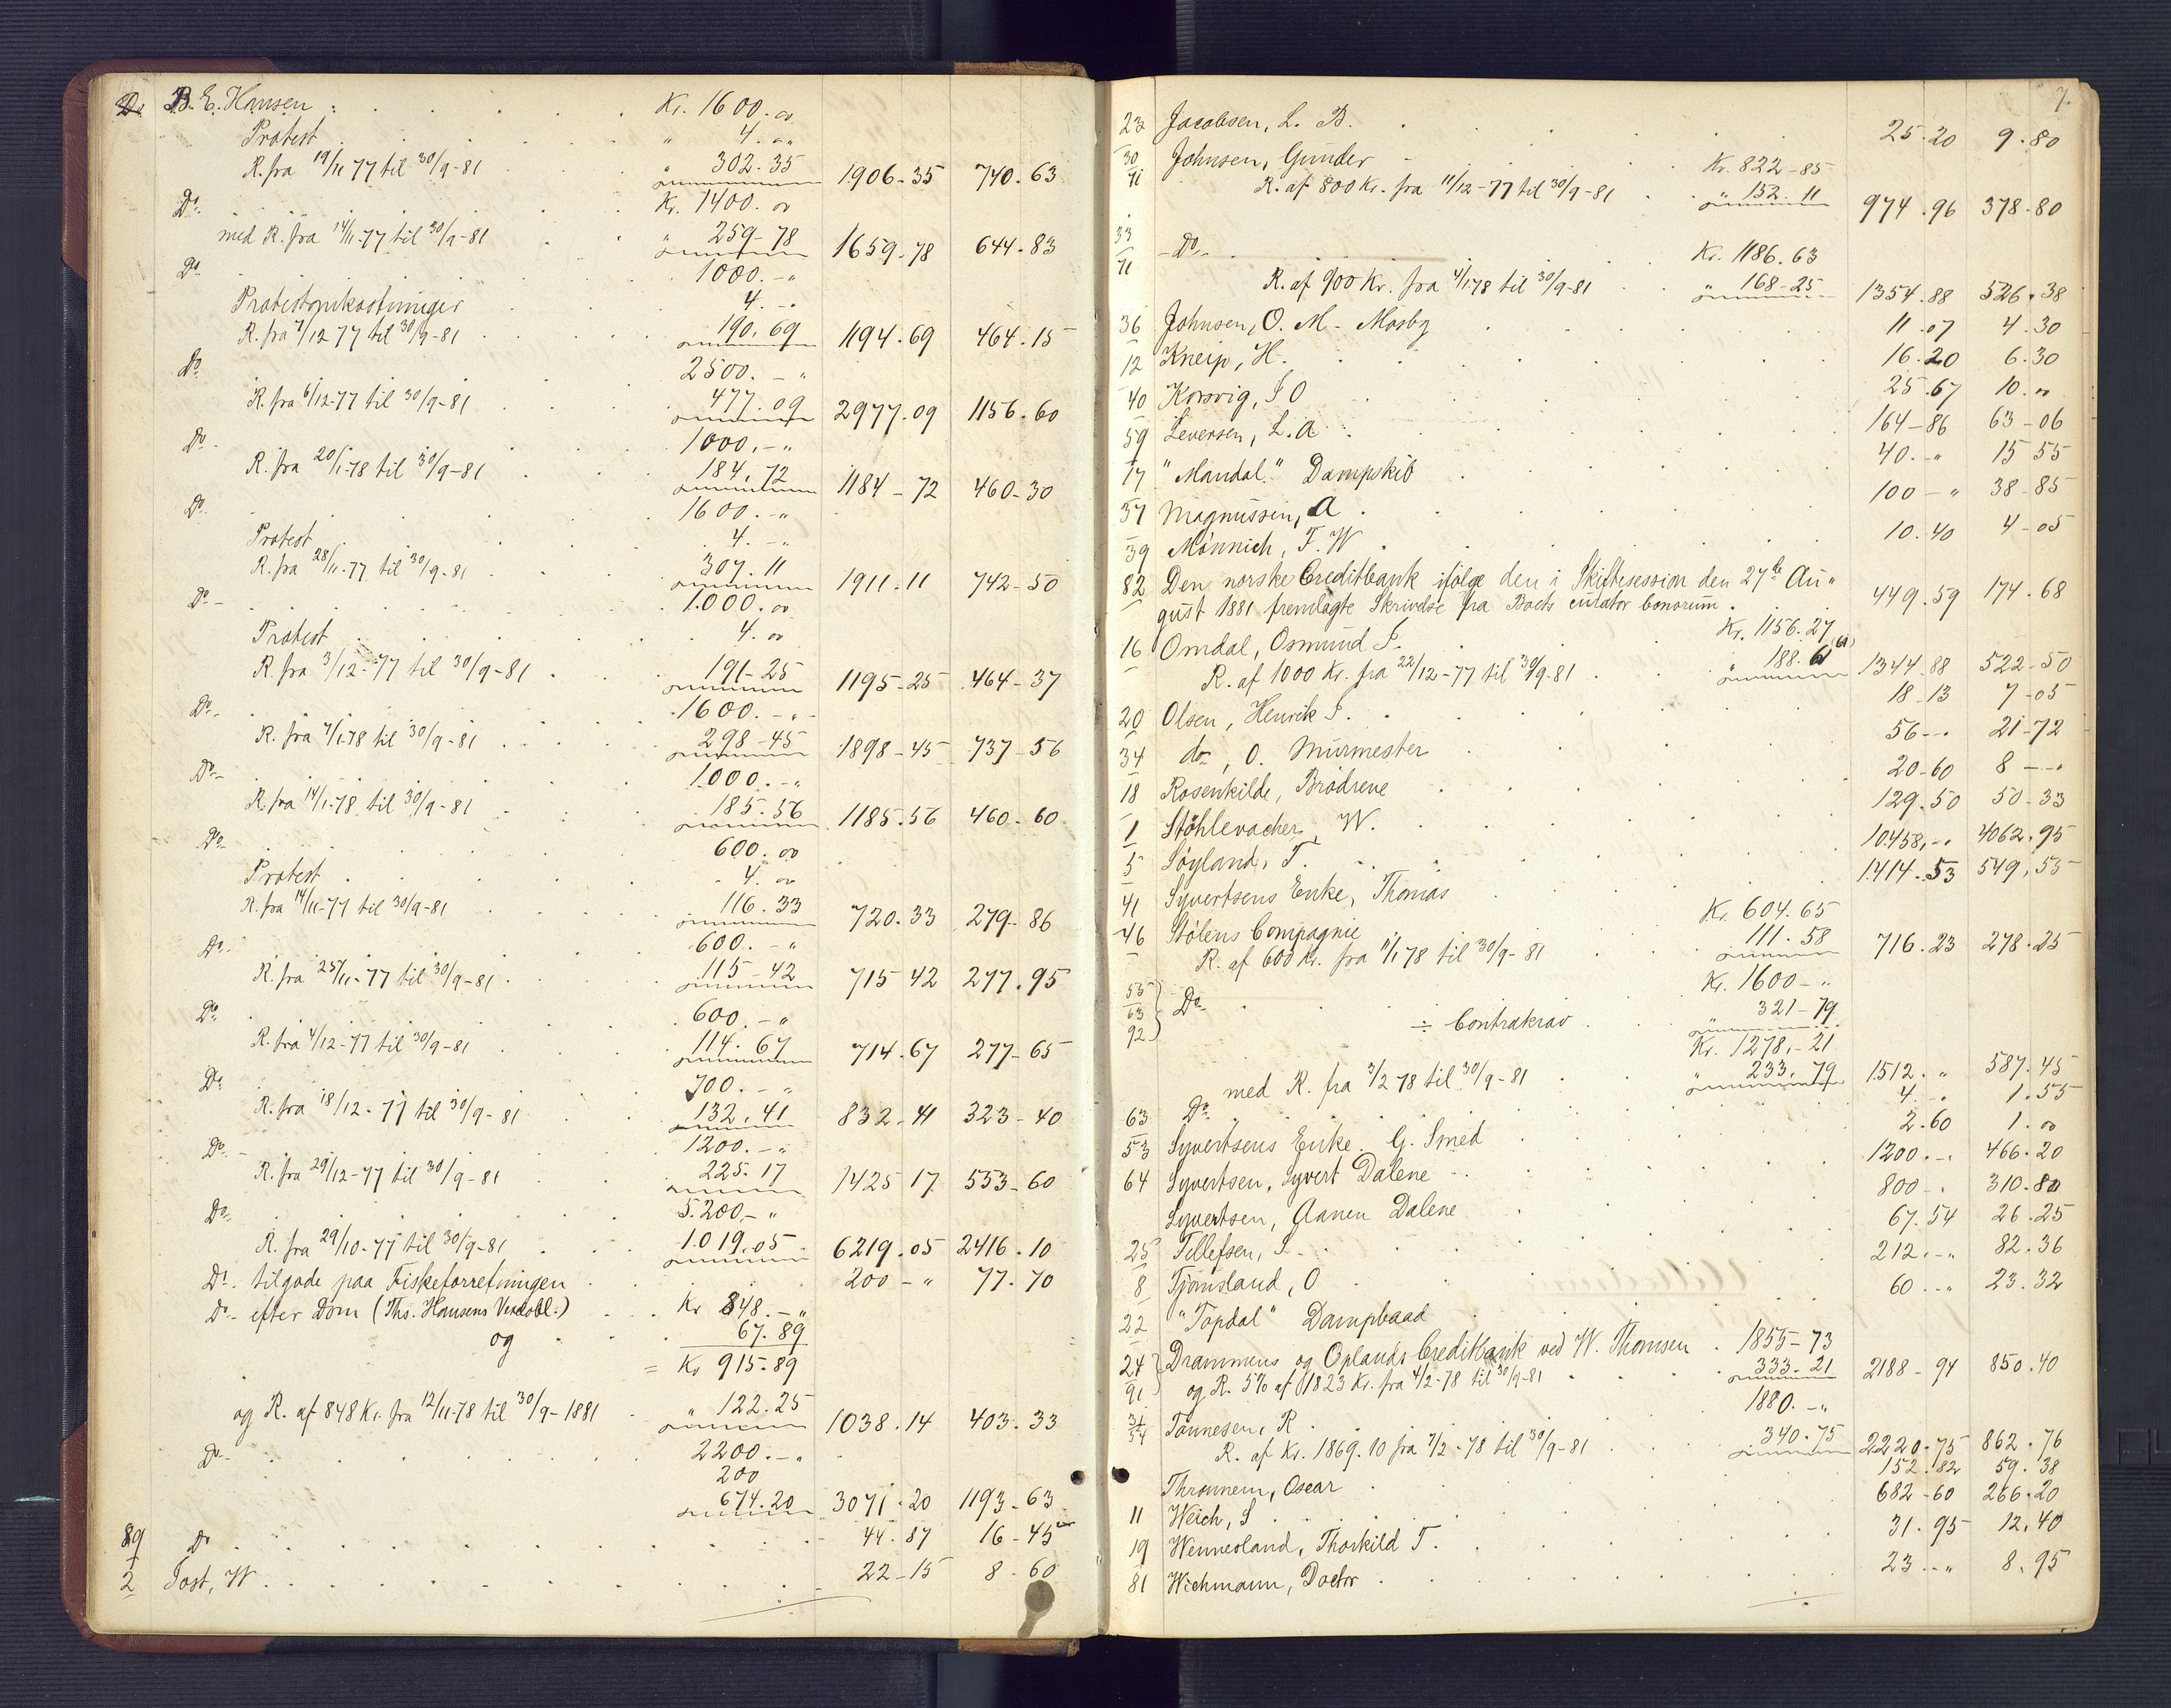 Do B. E. Hansen . . . . . Kr. 1600. 00
Protest . . . . . " 4. "
R. fra 19/11 77 til 30/9-81 . . . " 302. 35 1906. 35 740. 63
Do . . . . . Kr. 1400. 00
med R. fra 14/11-77 til 30/9-81 . . " 259-78 1659. 78 644. 83
Do . . . . . 1000. - "
Protestomkostninger . . . 4. - "
R. fra 7/12 77 til 30/9-81 . . . 190. 69 1194. 69 464. 15
Do . . . . . 2500. - "
R. fra 6/12-77 til 30/9-81 . . . 477. 09 2977. 09 1156. 60
Do . . . . . 1000. - "
R. fra 20/1-78 til 30/9-81 . . . 184. 72 1184-72 460-30
Do . . . . . 1600. - "
Protest . . . . . 4. - "
R. fra 28/11-77 til 30/9-81 . . . 307. 11 1911. 11 742-50
Do . . . . . 1.000. 00
Protest . . . . . 4. 00
R. fra 3/12-77 til 30/9-81 . . . 191-25 1195-25 464-37
Do . . . . . 1600. - "
R. fra 7/1-78 til 30/9-81 . . . 298-45 1898-45 737-56
Do . . . . . 1.000. - "
R. fra 14/1-78 til 30/9-81 . . . 185. 56 1185. 56 460. 60
Do . . . . . 600. 00
Protest . . . . . 4. 00
R. fra 14/11-77 til 30/9-81 . . . 116. 33 720. 33 279-86
Do . . . . . 600. - "
R. fra 25/11-77 til 30/9-81 . . . 115-42 715 42 277. 95
Do . . . . . 600. - "
R. fra 4/12-77 til 30/9-81 . . . 114. 67 714. 67 277-65
Do . . . . . 700. - "
R. fra 18/12-77 til 30/9-81 . . . 132. 41 832. 41 323-40
Do . . . . . 1200. - "
R. fra 29/12-77 til 30/9-81 . . . 225. 17 1425 17 553-60
Do . . . . . 5.200. - "
R. fra 29/10-77 til 30/9-81 . . . 1.019. 05 6219. 05 2416. 10
Do tilgode paa Fiskeforretningen . . . 200 - " 77. 70
Do efter Dom (Ths. Hansens Vexelobl.) . . Kr 848. - "
og . . . 67. 89
= Kr 915-89
og R. af 848 Kr. fra 12/11-78 til 30/9-1881 . " 122. 25 1038. 14 403. 33
Do . . . . . 2200. - "
200
674. 20 3071. 20 1193-63
89 Do . . . . . 44. 87 16-45
2 Jost, W. . . . . 22-15 8-60
7.
23 Jacobsen, L. B. . . . . 25. 20 9. 80
30 Johnsen, Gunder . . . Kr. 822-85
91 R. af 800 Kr. fra 11/12-77 til 30/9-81 . . " 152. 11 974. 96 378. 80
33 Do . . . . . Kr. 1186. 63
91 R. af 900 Kr. fra 4/1 78 til 30/9-81 . . " 168-25 1354. 88 526. 38
36 Johnsen, O. M. Mosby . . . 11. 07 4. 30
12 Kneip, H. . . . . 16. 20 6. 30
40 Korsvig, S O . . . . 25. 67 10. 00
59 Leversen, L. A . . . . 164-86 63-06
17 "Mandal" Dampskib . . . 40. - " 15 55
37 Magnussen, A . . . . 100 - " 38-85
39 Mönnich, F. W . . . . 10. 40 4-05
82 Den norske Creditbank ifølge den i Skiftesession den 27de Au"
gust 1881 fremlagte Skrivelse fra Boets curator bonorum . 449. 59 174. 68
16 Omdal, Osmund S. . . . Kr. 1156. 27
R. af 1000 Kr. fra 22/12-77 til 30/9-81 . . " 188. 61 (61) 1344. 88 522-50
20 Olsen, Henrik S. . . . . 18-13 7-05
34 do, O. Murmester . . . 56 - " 21-72
18 Rosenkilde, Brødrene . . . 20-60 8 - "
1 Stöhlevacher, W. . . . . 129. 50 50-33
5 Søyland, T. . . . . 10.458. - " 4062. 95
41 Syvertsens Enke, Thomas . . . 1.414. 53 549. 55
46 Stølens Compagnie . . . Kr. 604. 65
R. af 600 Kr. fra 1/1 78 til 30/9-81 . . 111. 58 716. 23 278. 25
55 Do . . . . . Kr. 1600 - "
63 ÷ Contrakrav . . " 321-79
92 Kr. 1278. - 21
med R. fra 3/2 78 til 30/9-81 . . " 233. 79 1512. " 587. 45
63 Do . . . . . 4. - " 1. 55
53 Syvertsens Enke. G. Smed . . . 2. 60 1. 00
64 Syvertsen, Syvert Dalene . . . 1200. - " 466. 20
Syvertsen, Aanen Dalene . . . 800 - " 310. 80
25 Tellefsen, S. . . . . 67. 54 26. 25
8 Tjomsland, O . . . . 212. - " 82. 36
22 "Topdal" Dampbaad . . . 60 - " 23. 32
24 Drammens og Oplands Creditbank ved W. Thomsen . 1855-73
91 og R. 5% af 1823 Kr. fra 4/2-78 til 30/9-81 . . 333-21 2188-94 850. 40
31 Tönnesen, R . . . . 1880. - "
54 R. af Kr. 1869. 10 fra 7/2-78 til 30/9-81 . . 340. 75 2220. 75 862. 76
Thronnem, Oscar . . . . 152. 82 59. 38
11 Weich, S . . . . . 682-60 266. 20
19 Wennesland, Thorkild T. . . . 31. 95 12. 40
81 Wichmann, Doctor . . . . 23 - " 8. 95